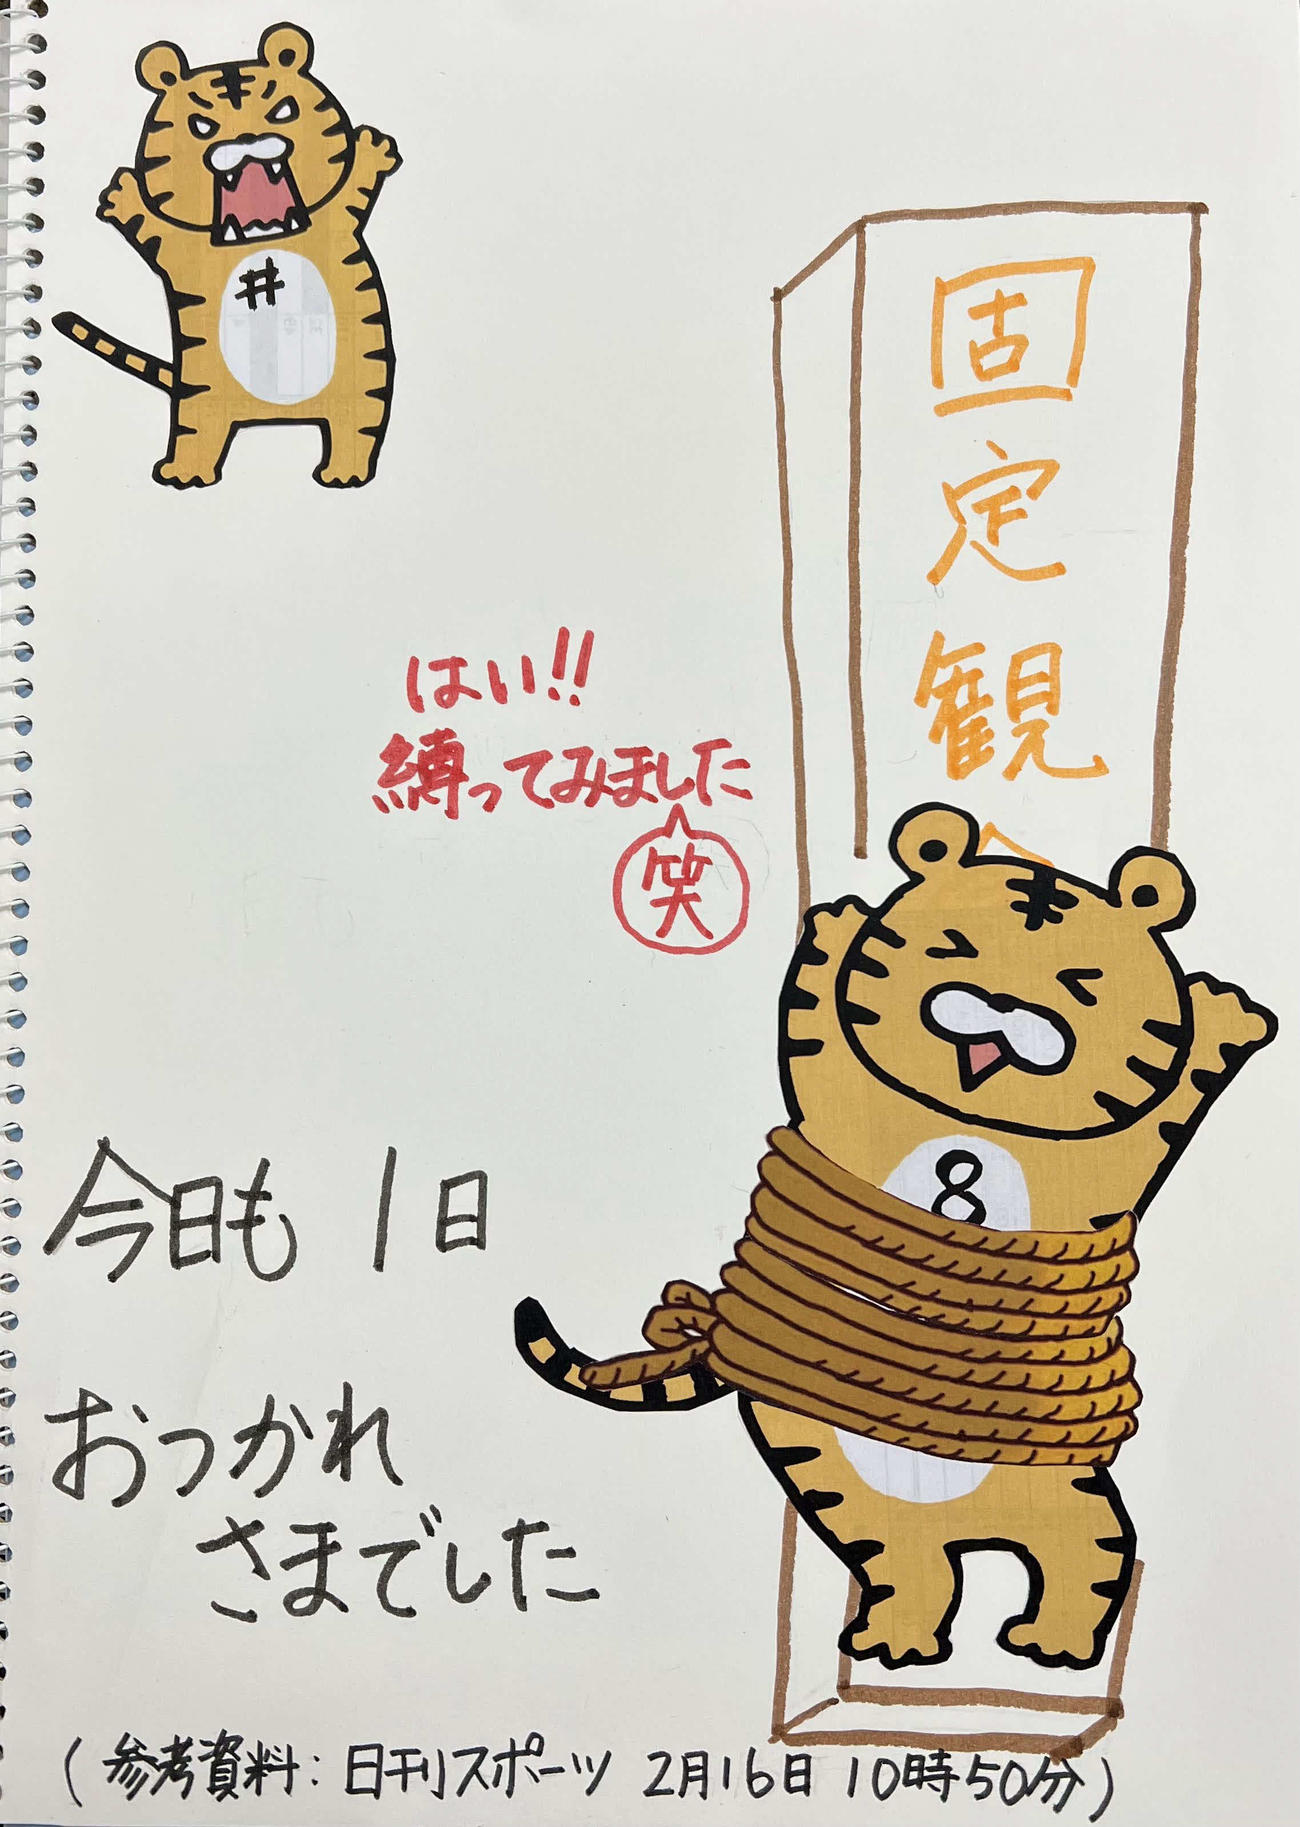 #
固定観
はい!!
縛ってみました
笑
8
今日も 1日
おつかれ
さまでした
(参考資料:日刊スポーツ 2月16日 10時50分)